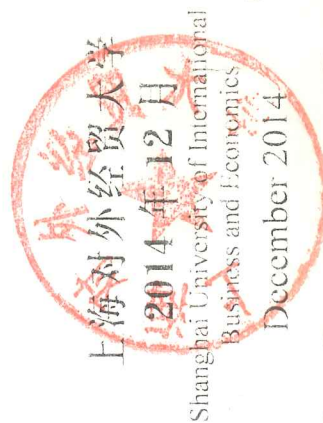 上海对外经贸大学
2014 年 12 月
Shanghai University of International
Business and Economics
December 2014